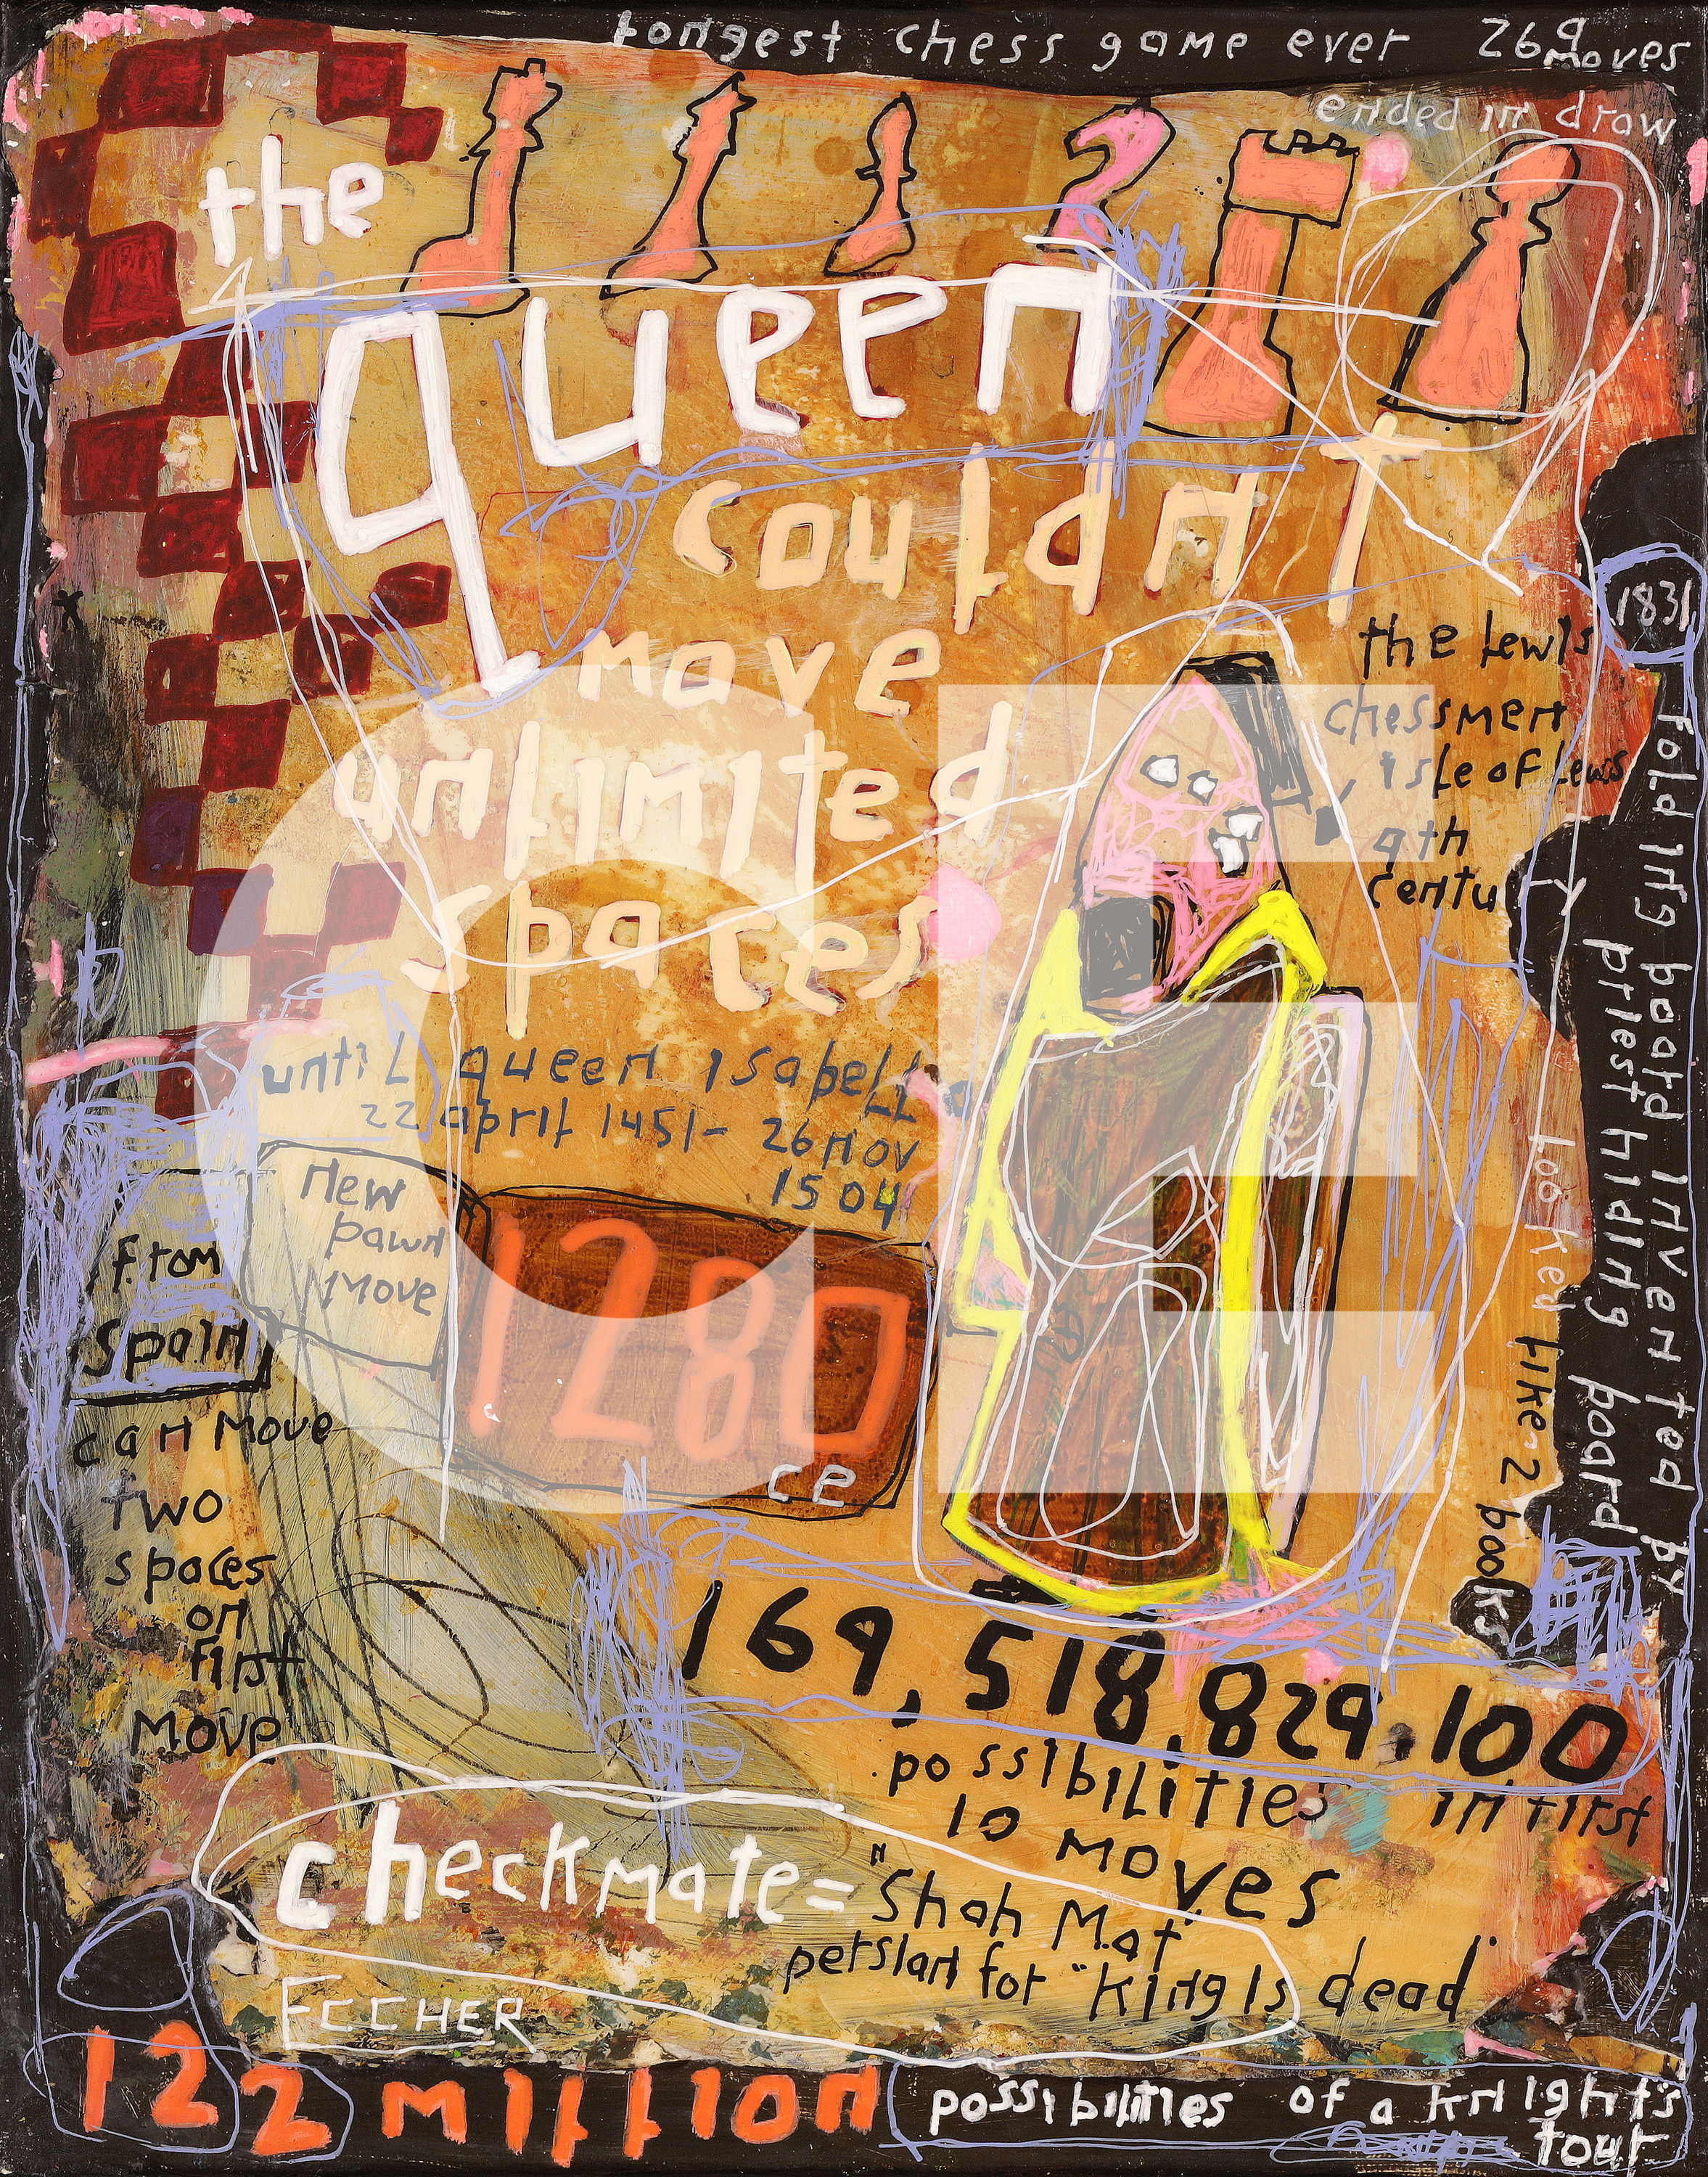 longest chess game ever 269 moves
ended in draw
the
queen
couldn't
move
unlimited
spaces
until queen isabell
22 april 1451- 26 nov
1504
the lewis
chessmen
isle of lewis
9th
centu
1831
folding board invented by
priest hiding board
looked like 2 books
new
pawn
move
from
Spain
can move
two
spaces
on
first
move
1280
ce
CE
169,518,829,100
possibilities in first
10 moves
checkmate = "Shah Mat"
persian for "king is dead"
ECCHER
122 million possibilities of a knight's
tour